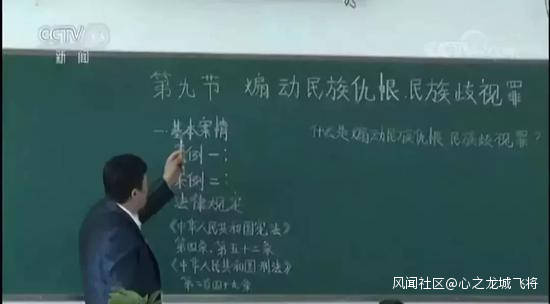 CCTV
新闻
第九节 煽动民族仇恨、民族歧视罪
一、基本案情
什么是煽动民族仇恨 民族歧视罪？
案例一：
案例二：
法律规定
《中华人民共和国宪法》
第四条、第五十二条
《中华人民共和国刑法》
第二百四十九条
风闻社区@心之龙城飞将